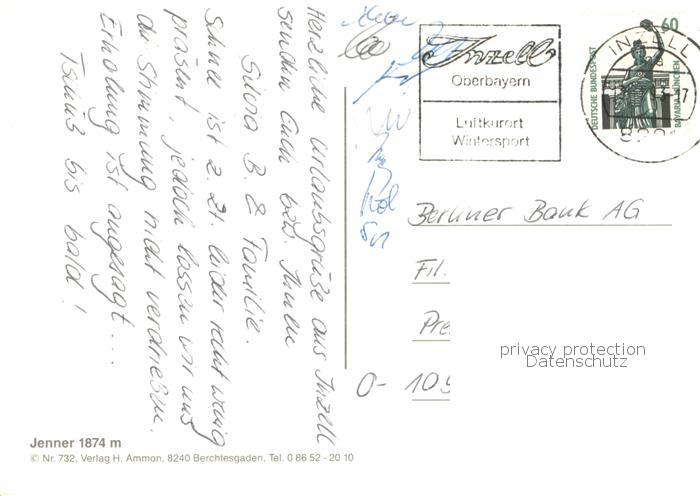 Herzliche Urlaubsgrüße aus Inzell
senden Euch bzw. Ihnen
Silvia B. & Familie.
Schnee ist z. Zt. leider nicht wenig
präsent, jedoch lassen wir uns
die Stimmung nicht verdrießen.
Erholung ist angesagt...
Tschüß bis bald!
Inzell
Oberbayern
Luftkurort
Wintersport
INZELL
60
DEUTSCHE BUNDESPOST
BAVARIA MÜNCHEN
Berliner Bank AG
Fil.
Pre
0- 109
privacy protection
Datenschutz
Jenner 1874 m
© Nr. 732, Verlag H. Ammon, 8240 Berchtesgaden, Tel. 0 86 52 - 20 10